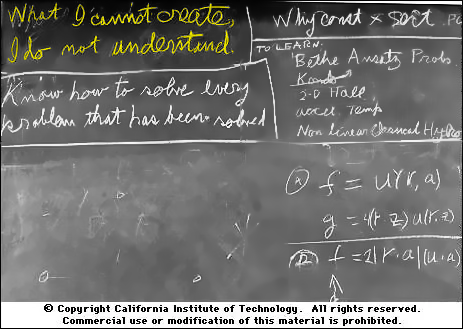 What I cannot create,
I do not understand.
Know how to solve every
problem that has been solved
Why const × sort . Po
TO LEARN:
Bethe Ansatz Probs.
Kondo
2-D Hall
accel. Temp
Non Linear Classical Hydro
f = u(r, a)
g = 4(r·z) u(r,z)
f = 2|r·a|(u·a)
© Copyright California Institute of Technology. All rights reserved.
Commercial use or modification of this material is prohibited.